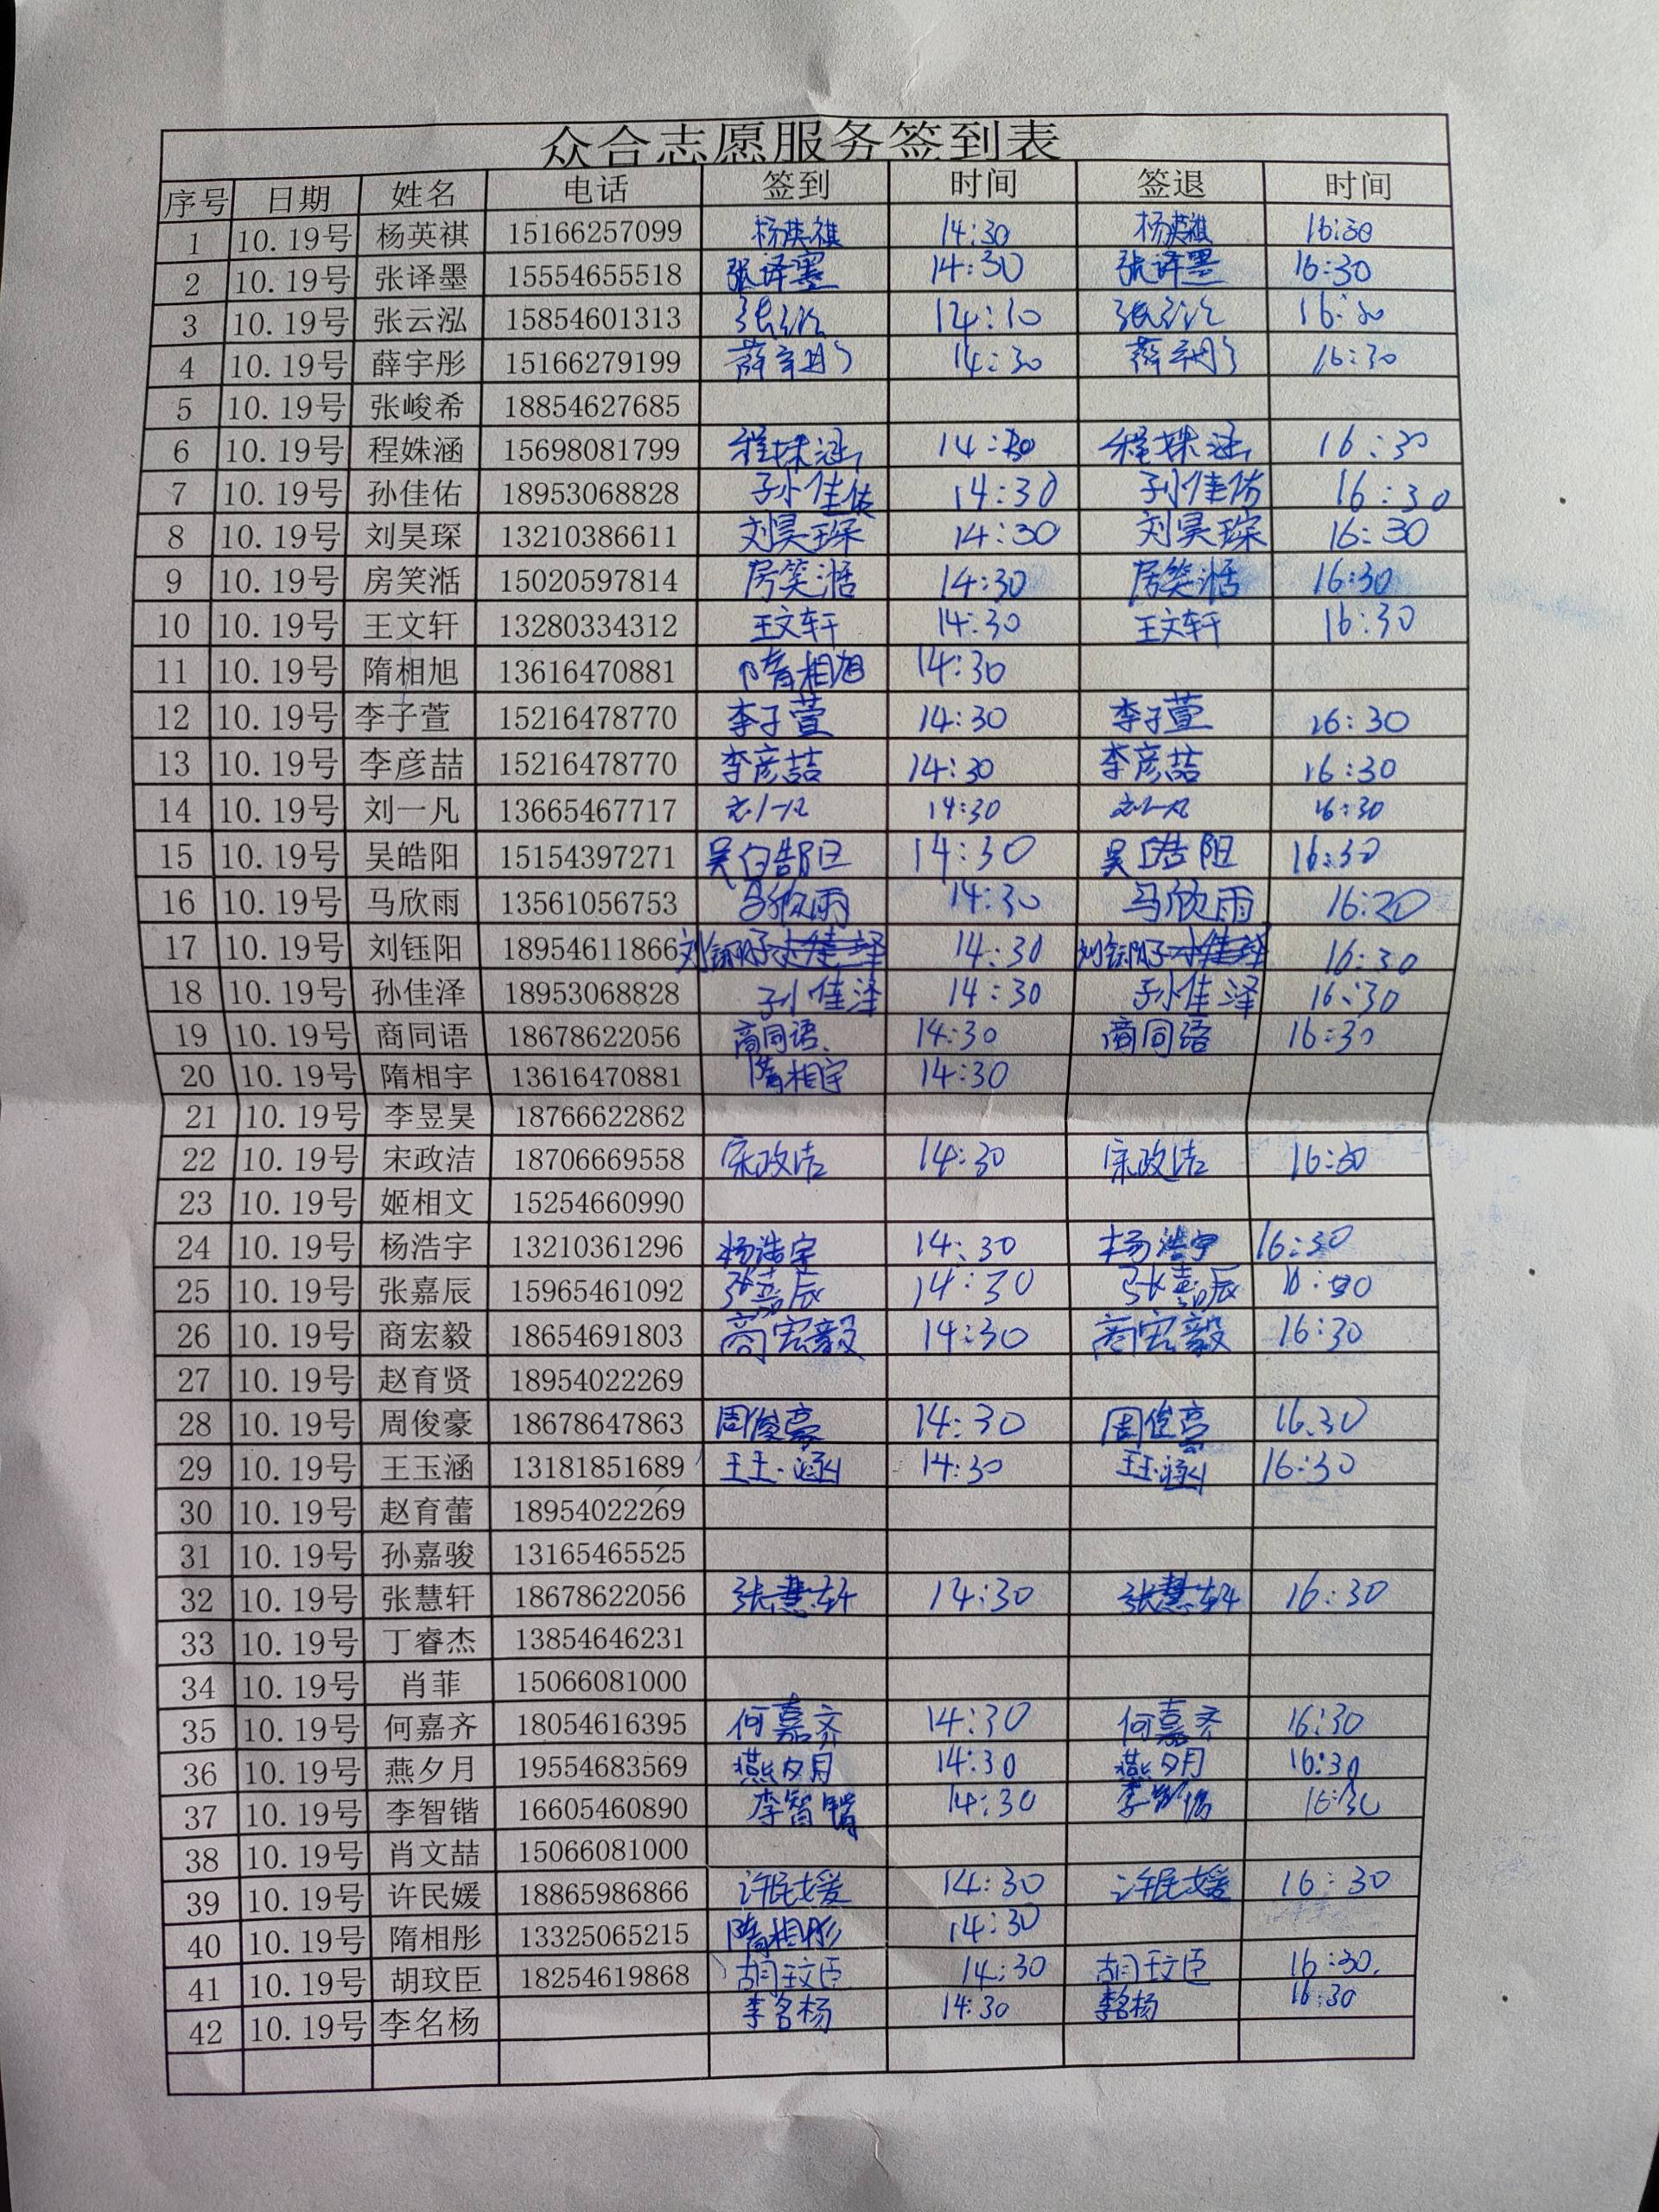 众合志愿服务签到表
序号 日期 姓名 电话 签到 时间 签退 时间
1 10.19号 杨英祺 15166257099 杨英祺 14:30 杨英祺 16:30
2 10.19号 张译墨 15554655518 张译墨 14:30 张译墨 16:30
3 10.19号 张云泓 15854601313 14:10
4 10.19号 薛宇彤 15166279199 薛宇彤 14:30 薛宇彤 16:30
5 10.19号 张峻希 18854627685
6 10.19号 程姝涵 15698081799 程姝涵 14:30 程姝涵 16:30
7 10.19号 孙佳佑 18953068828 孙佳佑 14:30 孙佳佑 16:30
8 10.19号 刘昊琛 13210386611 刘昊琛 14:30 刘昊琛 16:30
9 10.19号 房笑湉 15020597814 房笑湉 14:30 房笑湉 16:30
10 10.19号 王文轩 13280334312 王文轩 14:30 王文轩 16:30
11 10.19号 隋相旭 13616470881 隋相旭 14:30
12 10.19号 李子萱 15216478770 李子萱 14:30 李子萱 16:30
13 10.19号 李彦喆 15216478770 李彦喆 14:30 李彦喆 16:30
14 10.19号 刘一凡 13665467717 刘一凡 14:30 刘一凡 16:30
15 10.19号 吴皓阳 15154397271 吴皓阳 14:30 吴皓阳 16:30
16 10.19号 马欣雨 13561056753 马欣雨 14:30 马欣雨 16:20
17 10.19号 刘钰阳 18954611866 刘钰阳 14:30 刘钰阳 16:30
18 10.19号 孙佳泽 18953068828 孙佳泽 14:30 孙佳泽 16:30
19 10.19号 商同语 18678622056 商同语 14:30 商同语 16:30
20 10.19号 隋相宇 13616470881 隋相宇 14:30
21 10.19号 李昱昊 18766622862
22 10.19号 宋政洁 18706669558 宋政洁 14:30 宋政洁 16:30
23 10.19号 姬相文 15254660990
24 10.19号 杨浩宇 13210361296 杨浩宇 14:30 杨浩宇 16:30
25 10.19号 张嘉辰 15965461092 张嘉辰 14:30 张嘉辰
26 10.19号 商宏毅 18654691803 商宏毅 14:30 商宏毅 16:30
27 10.19号 赵育贤 18954022269
28 10.19号 周俊豪 18678647863 周俊豪 14:30 周俊豪 16:30
29 10.19号 王玉涵 13181851689 王玉涵 14:30 王玉涵 16:30
30 10.19号 赵育蕾 18954022269
31 10.19号 孙嘉骏 13165465525
32 10.19号 张慧轩 18678622056 张慧轩 14:30 张慧轩 16:30
33 10.19号 丁睿杰 13854646231
34 10.19号 肖菲 15066081000
35 10.19号 何嘉齐 18054616395 何嘉齐 14:30 何嘉齐 16:30
36 10.19号 燕夕月 19554683569 燕夕月 14:30 燕夕月 16:30
37 10.19号 李智锴 16605460890 李智锴 14:30 李智锴 16:30
38 10.19号 肖文喆 15066081000
39 10.19号 许民媛 18865986866 许民媛 14:30 许民媛 16:30
40 10.19号 隋相彤 13325065215 隋相彤 14:30
41 10.19号 胡玟臣 18254619868 胡玟臣 14:30 胡玟臣 16:30.
42 10.19号 李名杨 李名杨 14:30 李名杨 16:30